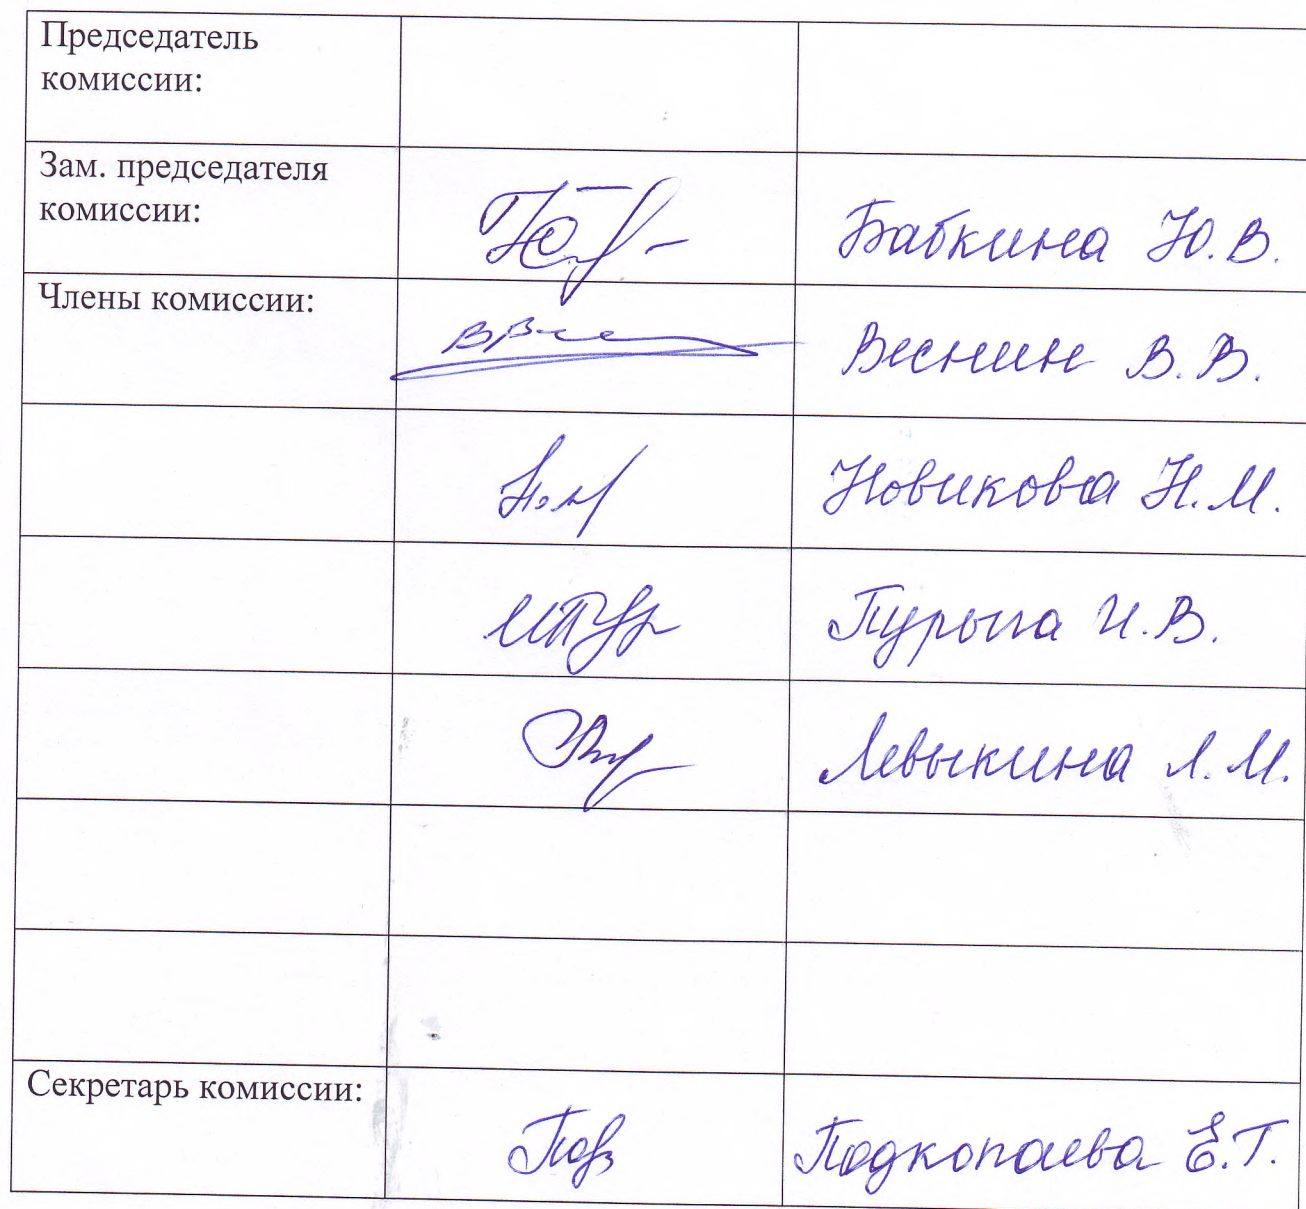 Председатель
комиссии:
Зам. председателя
комиссии:
Бабкина Ю.В.
Члены комиссии:
Веснин В.В.
Новикова Н.М.
Пурыга И.В.
Левыкина Л.М.
Секретарь комиссии:
Подкопаева Е.Г.